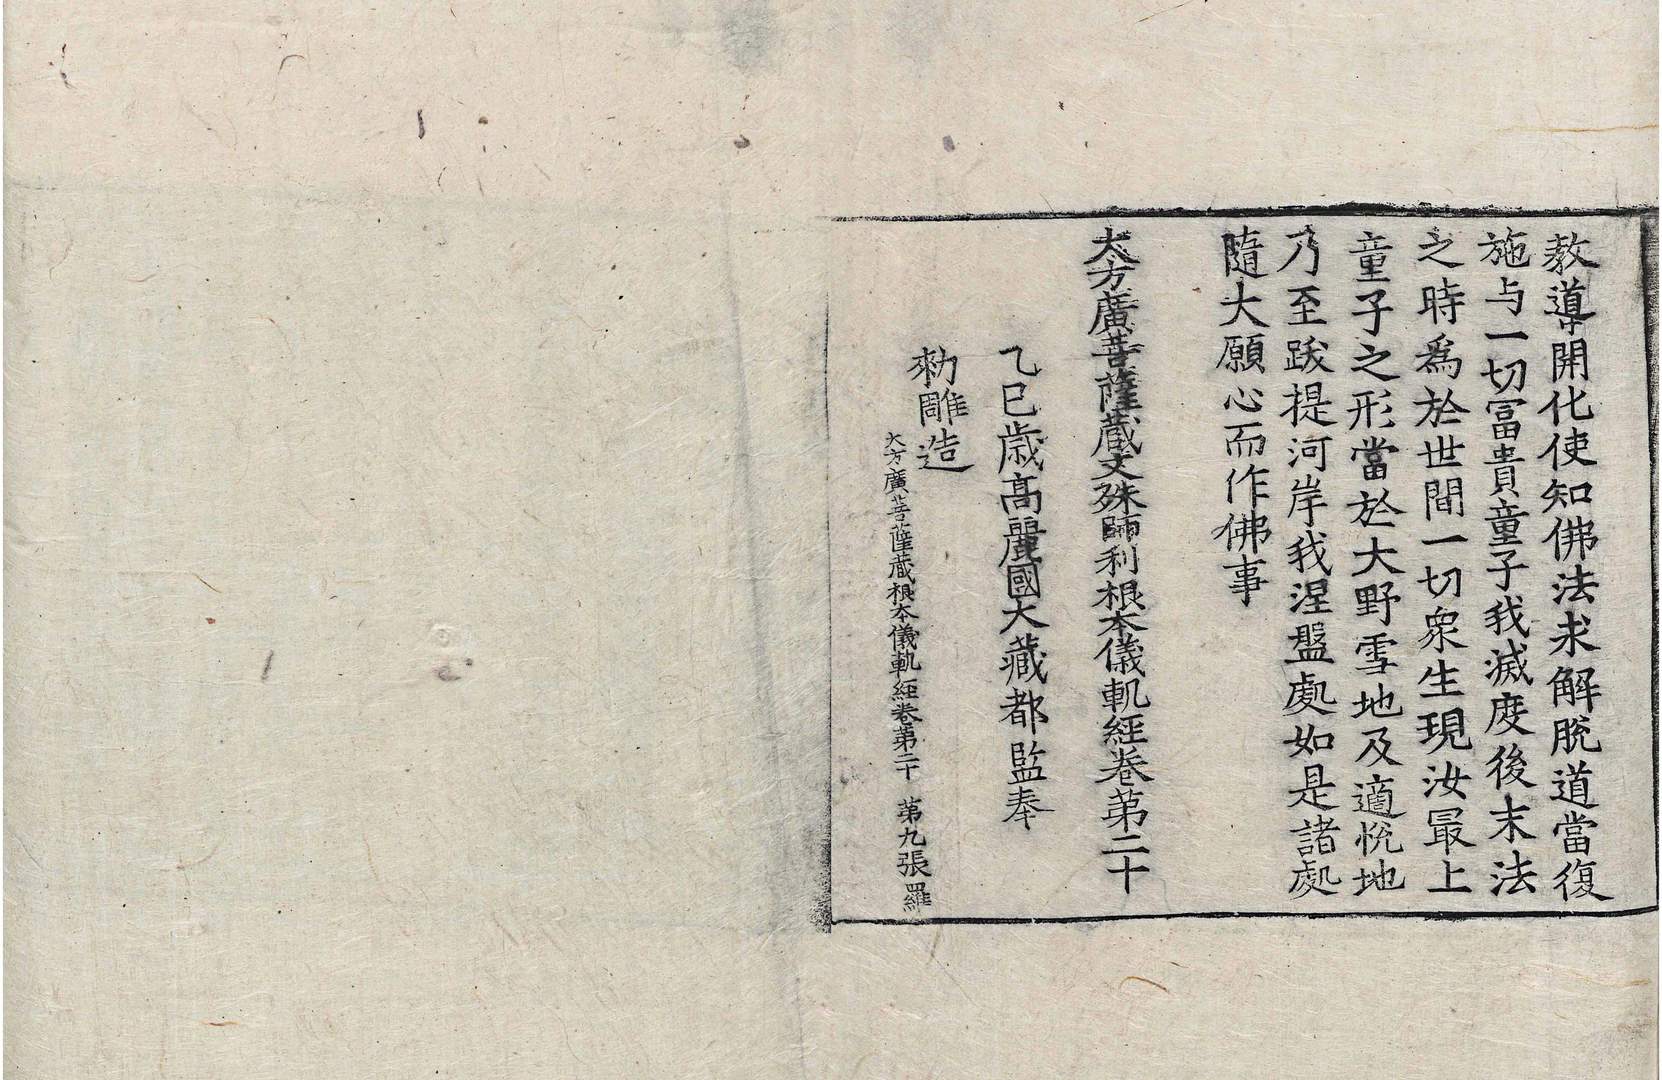 教導開化使知佛法求解脫道當復
施与一切冨貴童子我滅度後末法
之時爲於世間一切衆生現汝冣上
童子之形當於大野雪地及適悅地
乃至跋提河岸我涅盤處如是諸處
隨大願心而作佛事
大方廣菩薩蔵文殊師利根本儀軌經卷第二十
乙巳歲高麗國大藏都監奉
勑雕造
大方廣菩薩蔵根本儀軌経卷第二十 第九張 羅